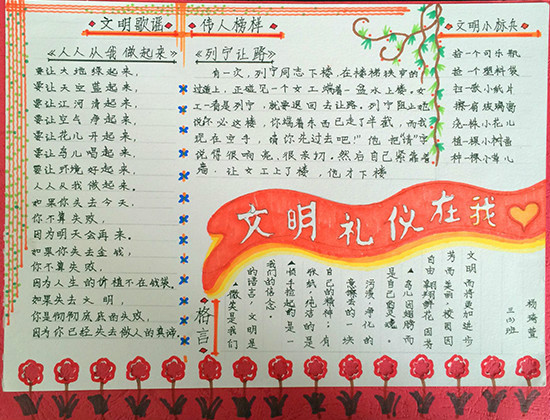 文明歌谣
《人人从我做起来》
要让大地绿起来,
要让天空蓝起来,
要让江河清起来,
要让空气净起来,
要让花儿开起来,
要让鸟儿唱起来,
要让环境好起来,
人人从我做起来。
如果你失去今天,
你不算失败,
因为明天会再来。
如果你失去金钱,
你不算失败,
因为人生的价值不在钱袋。
如果失去文明,
你是彻彻底底的失败,
因为你已经失去做人的真谛。
伟人榜样
《列宁让路》
有一次,列宁同志下楼,在楼梯狭窄的
过道上,正碰见一个女工端着一盆水上楼。女
工一看是列宁,就要退回去让路。列宁阻止她
说"不必这样,你端着东西已走了半截,而我
现在空手,请你先过去吧!"他把"请"字
说得很响亮,很亲切。然后自己紧靠着
墙,让女工上了楼,他才下楼
文明小标兵
捡一个可乐瓶
捡一个塑料袋
扫一歌小纸片
擦肩玻璃窗
浇一株小花儿
植一棵小树苗
种一棵小草儿
文明礼仪在我
格言
▲微笑是我们
的语言,文明是
我们的信念。
▲俯手捡起的是一
张纸,纯洁的是
自己的精神;有
意擦去的一块
污渍,净化的
是自己的灵魂。
▲鸟儿因翅膀而
自由翱翔鲜花因芬
芳而美丽,校园因
文明而将更加进步
三(1)班
杨琦萱